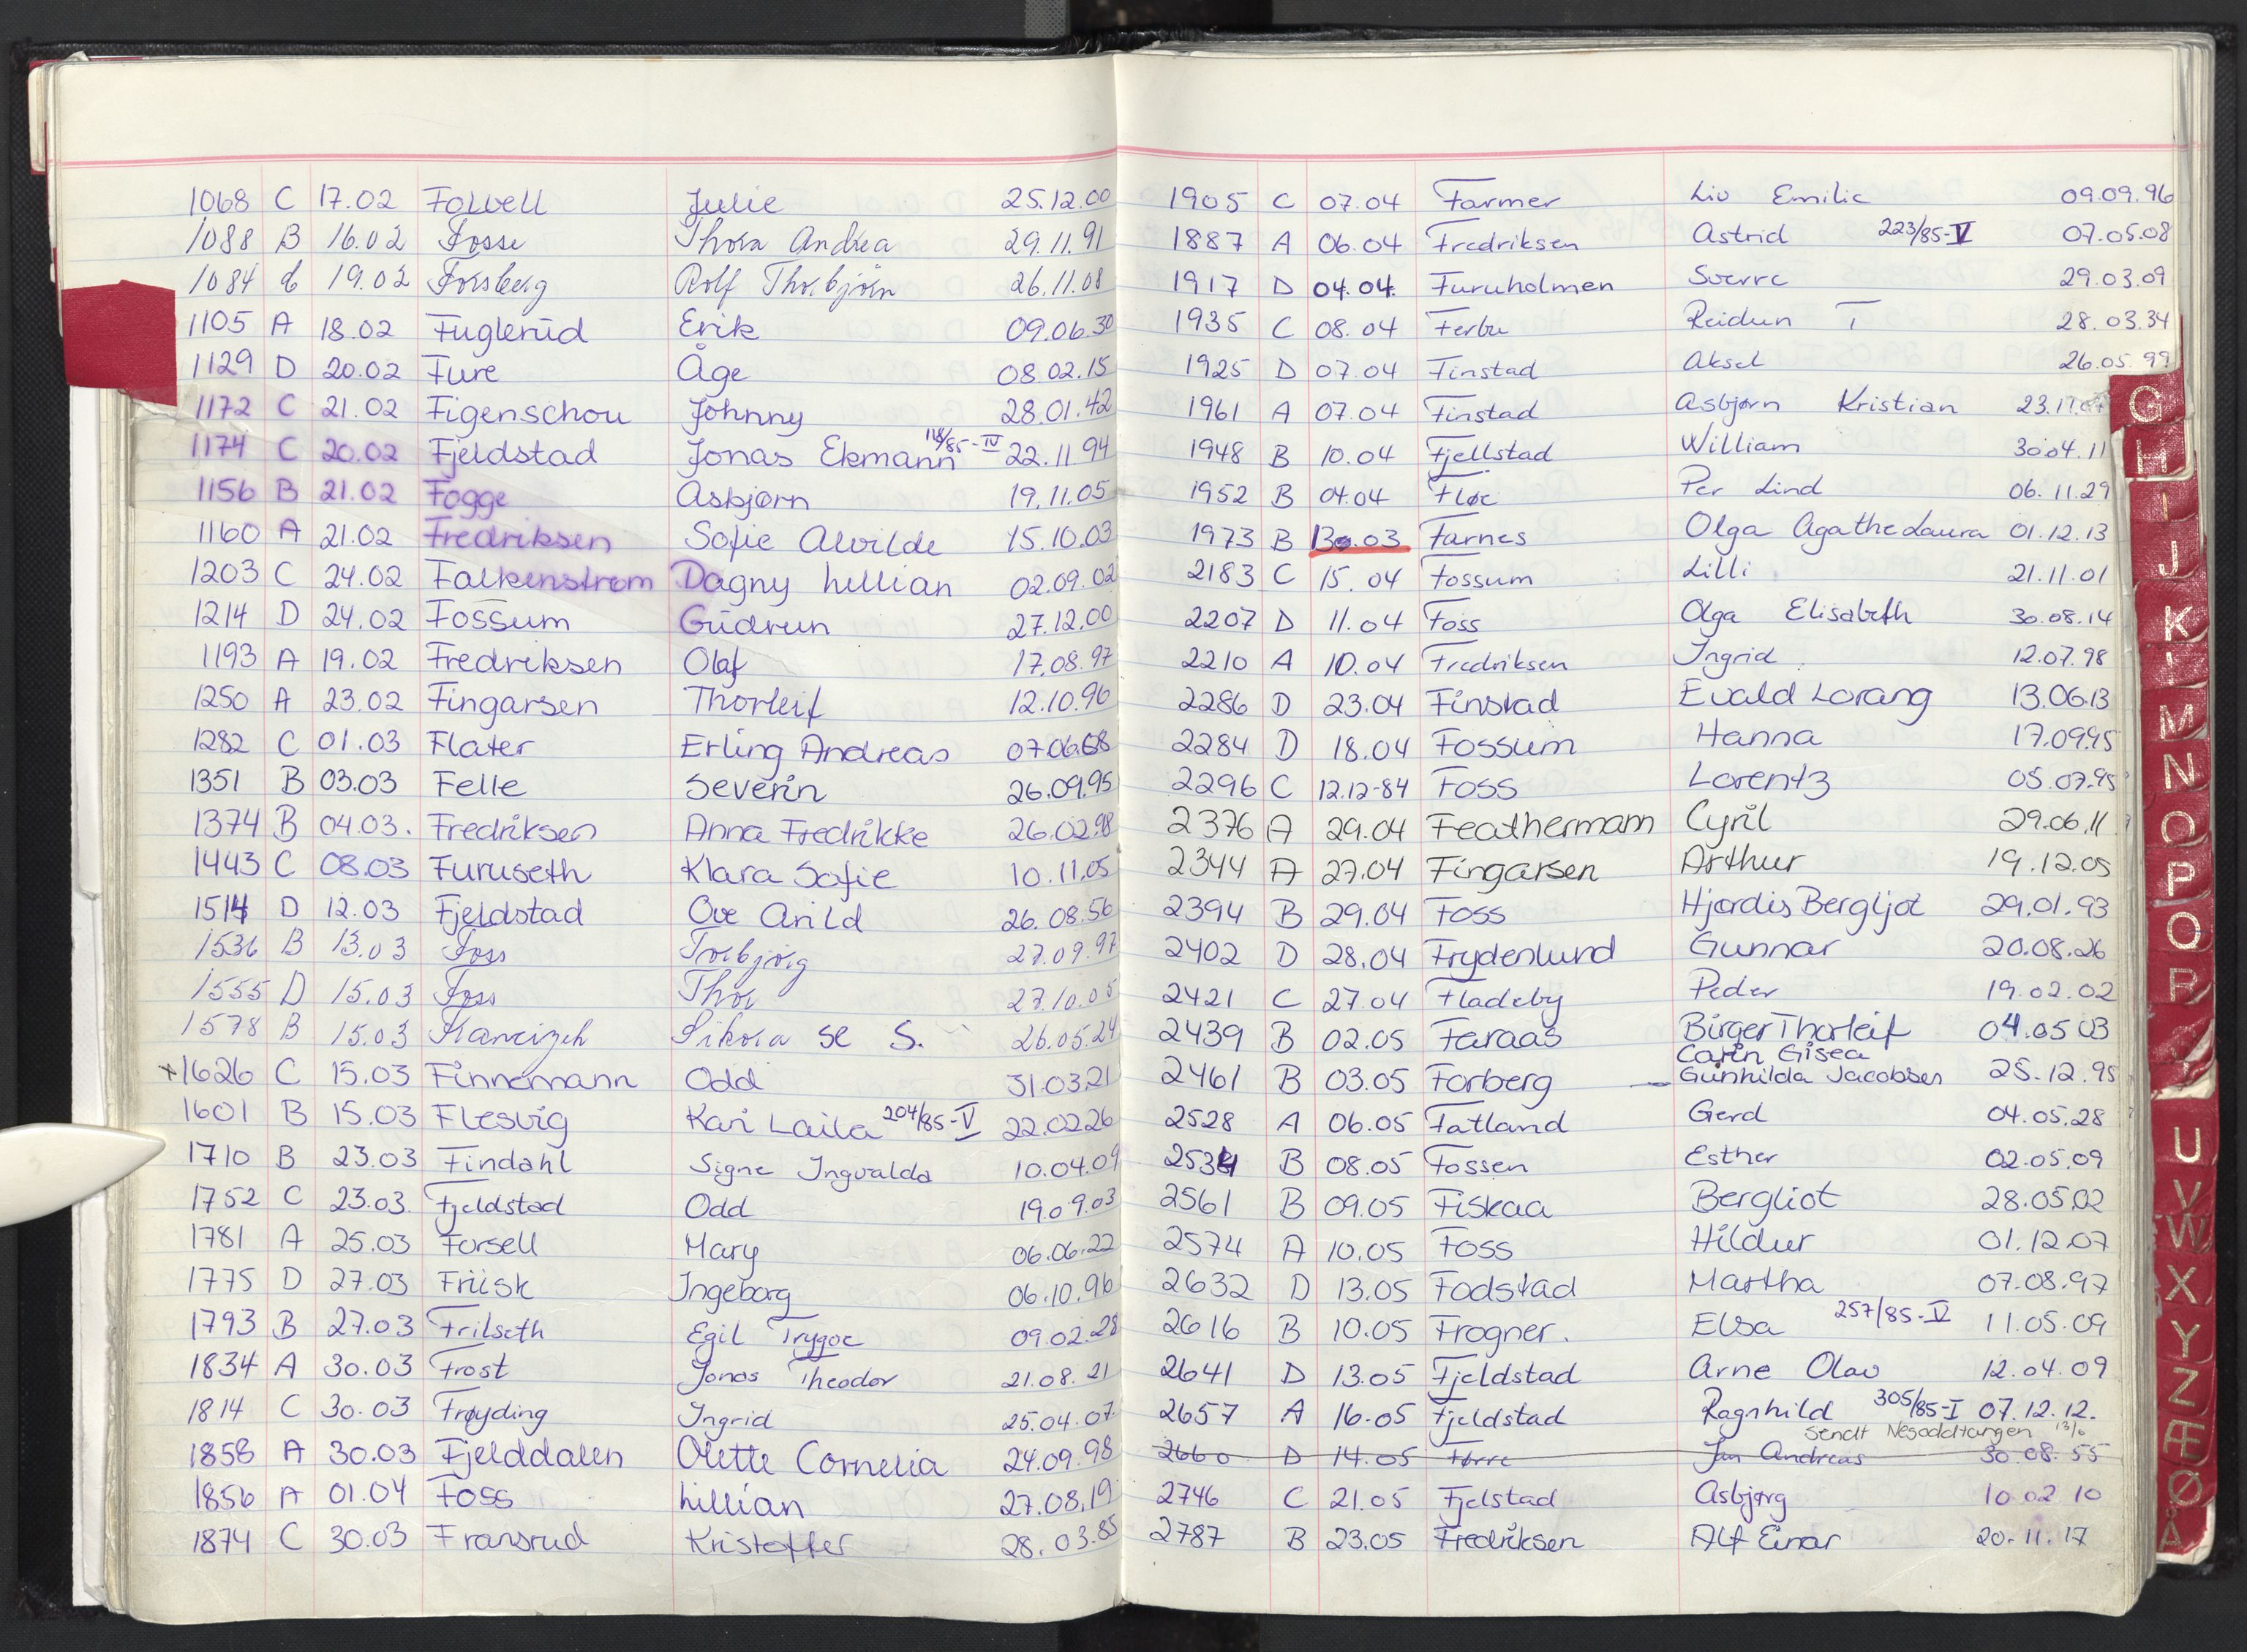 1068 C 17.02 Folvell Julie 25.12.00
1088 B 16.02 Fosse Thora Andrea 29.11.91
1084 C 19.02 Forsberg Rolf Thorbjørn 26.11.08
1105 A 18.02 Fuglerud Erik 09.06.30
1129 D 20.02 Fure Åge 08.02.15
1172 C 21.02 Figenschou Johnny 28.01.42
1174 C 20.02 Fjeldstad Jonas Ekmann 118/85-IV 22.11 94
1156 B 21.02 Fogge Asbjørn 19.11.05
1160 A 21.02 Fredriksen Sofie Alvilde 15.10.03
1203 C 24.02 Falkenstrøm Dagny Lillian 02.09.02
1214 D 24.02 Fossum Gudrun 27.12.00
1193 A 19.02 Fredriksen Olaf 17.08.97
1250 A 23.02 Fingarsen Thorleif 12.10.96
1282 C 01.03 Flater Erling Andreas 07.06.08
1351 B 03.03 Felle Severin 26.09.95
1374 B 04.03. Fredriksen Anna Fredrikke 26.02.98
1443 C 08.03 Furuseth Klara Sofie 10.11.05
1514 D 12.03 Fjeldstad Ove Arild 26.08.56
1536 B 13.03 Foss Torbjørg 27.09.97
1555 D 15.03 Foss Thor 27.10.05
1578 B 15.03 Sikora se S. 26.05.24
+1626 C 15.03 Finnemann Odd 31.03.21
1601 B 15.03 Flesvig Kari Laila 204/85-V 22.02.26
1710 B 23.03 Findahl Signe Ingvalda 10.04.09
1752 C 23.03. Fjeldstad Odd 19.09.03
1781 A 25.03 Forsell Mary 06.06.22
1775 D 27.03 Friisk Ingeborg 06.10.96
1793 B 27.03 Frilseth Egil Trygve 09.02.28
1834 A 30.03 Frost Jonas Theodor 21.08.21
1814 C 30.03 Frøyding Ingrid 25.04.07
1858 A 30.03 Fjelddalen Olette Cornelia 24.09.98
1856 A 01.04 Foss Lillian 27.08.19
1874 C 30.03 Fransrud Kristoffer 28.03.85
1905 C 07.04 Farmer Liv Emilie 09.09.96
1887 A 06.04 Fredriksen Astrid 223/85-V 07.05.08
1917 D 04.04. Furuholmen Sverre 29.03.09
1935 C 08.04 Ferbu Reidun T 28.03.34
1925 D 07.04 Finstad Aksel 26.05.99
1961 A 07.04 Finstad Asbjørn Kristian
1948 B 10.04 Fjellstad William 30.04.11
1952 B 04.04 Fløe Per Lind 06.11.29
1973 B 30.03 Farnes Olga Agathe Laura 01.12.13
2183 C 15.04 Fossum Lilli 21.11.01
2207 D 11.04 Foss Olga Elisabeth 30.08.14
2210 A 10.04 Fredriksen Ingrid 12.07.98
2286 D 23.04 Finstad Evald Lorang 13.06.13
2284 D 18.04 Fossum Hanna 17.09.95
2296 C 12.12-84 Foss Lorentz 05.07.95
2376 A 29.04 Feathermann Cyril 29.06.11
2344 A 27.04 Fingarsen Arthur 19.12.05
2394 B 29.04 Foss Hjørdis Bergljot 29.01.93
2402 D 28.04 Frydenlund Gunnar 20.08.26
2421 C 27.04 Fladeby Peder 19.02.02
2439 B 02.05 Faraas Birger Thorleif 04.05.03
2461 B 03.05 Forberg Carin Gisea
Gunhilda Jacobsen 25.12.95
2528 A 06.05 Fatland Gerd 04.05.28
2534 B 08.05 Fossen Esther 02.05.09
2561 B 09.05 Fiskaa Bergliot 28.05.02
2574 A 10.05 Foss Hildur 01.12.07
2632 D 13.05 Fodstad Martha 07.08.97
2616 B 10.05 Frogner. Elsa 257/85-IV 11.05.09
2641 D 13.05 Fjeldstad Arne Olav 12.04.09
2657 A 16.05 Fjeldstad Ragnhild 305/85-I 07.12.12.
Sendt Nesoddtangen
2660 D 14.05 Førre Jan Andreas 30.08.55
2746 C 21.05 Fjelstad Asbjørg 10.02 10
2787 B 23.05 Fredriksen Alf Einar 20.11.17
G
H
I
J
K
L
M
N
O
P
Q
R
U
V
W
X
Y
Z
Æ
Ø
Å